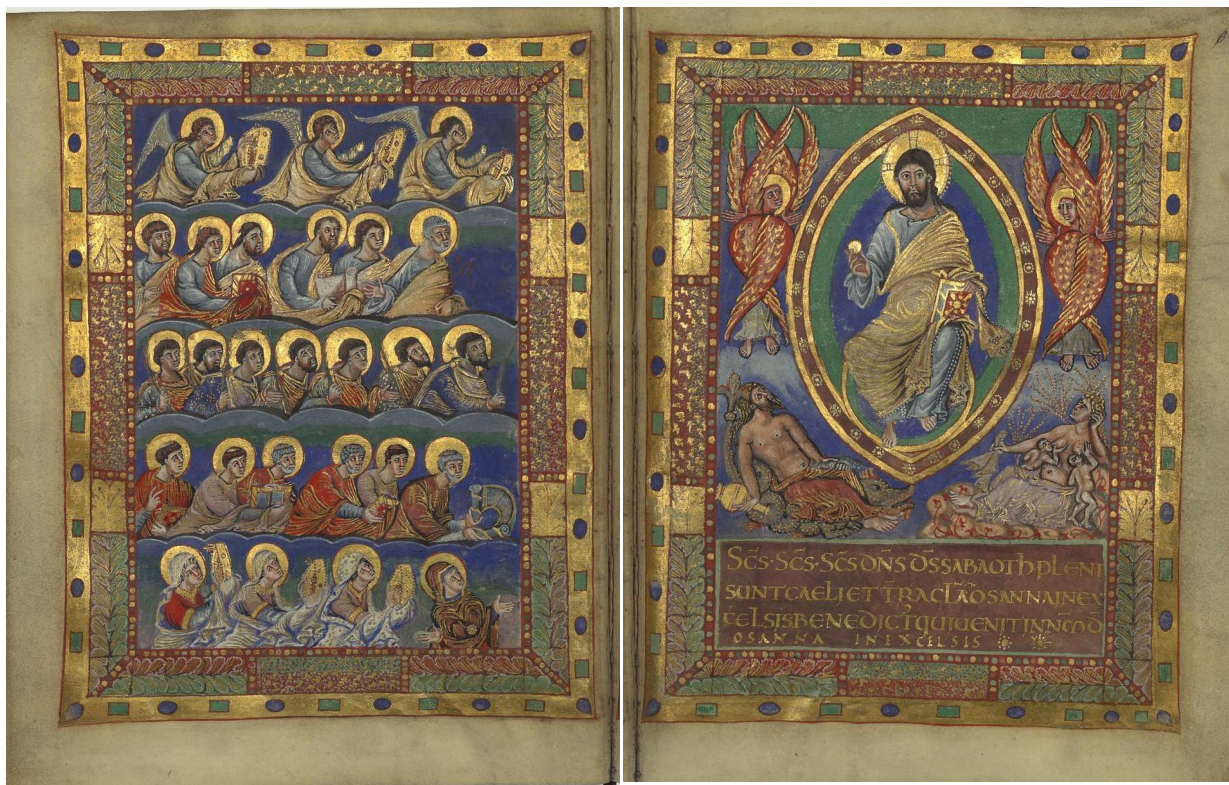 SC̄S·SC̄S·SC̄S DN̄S DS̄ SABAOTH PLENI
SUNT CAELI ET TR̄RA GLĀ OSANNA IN EX
CELSIS BENEDICT QUI UENIT IN NM̄ DN̄I
OSANNA IN EXCELSIS